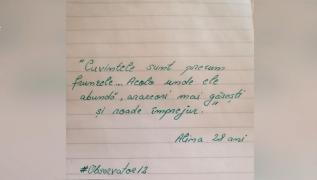 "Cuvintele sunt precum
frunzele... Acolo unde ele
abundă, arareori mai găsești
și roade împrejur."
Alina 28 ani
#Observator12